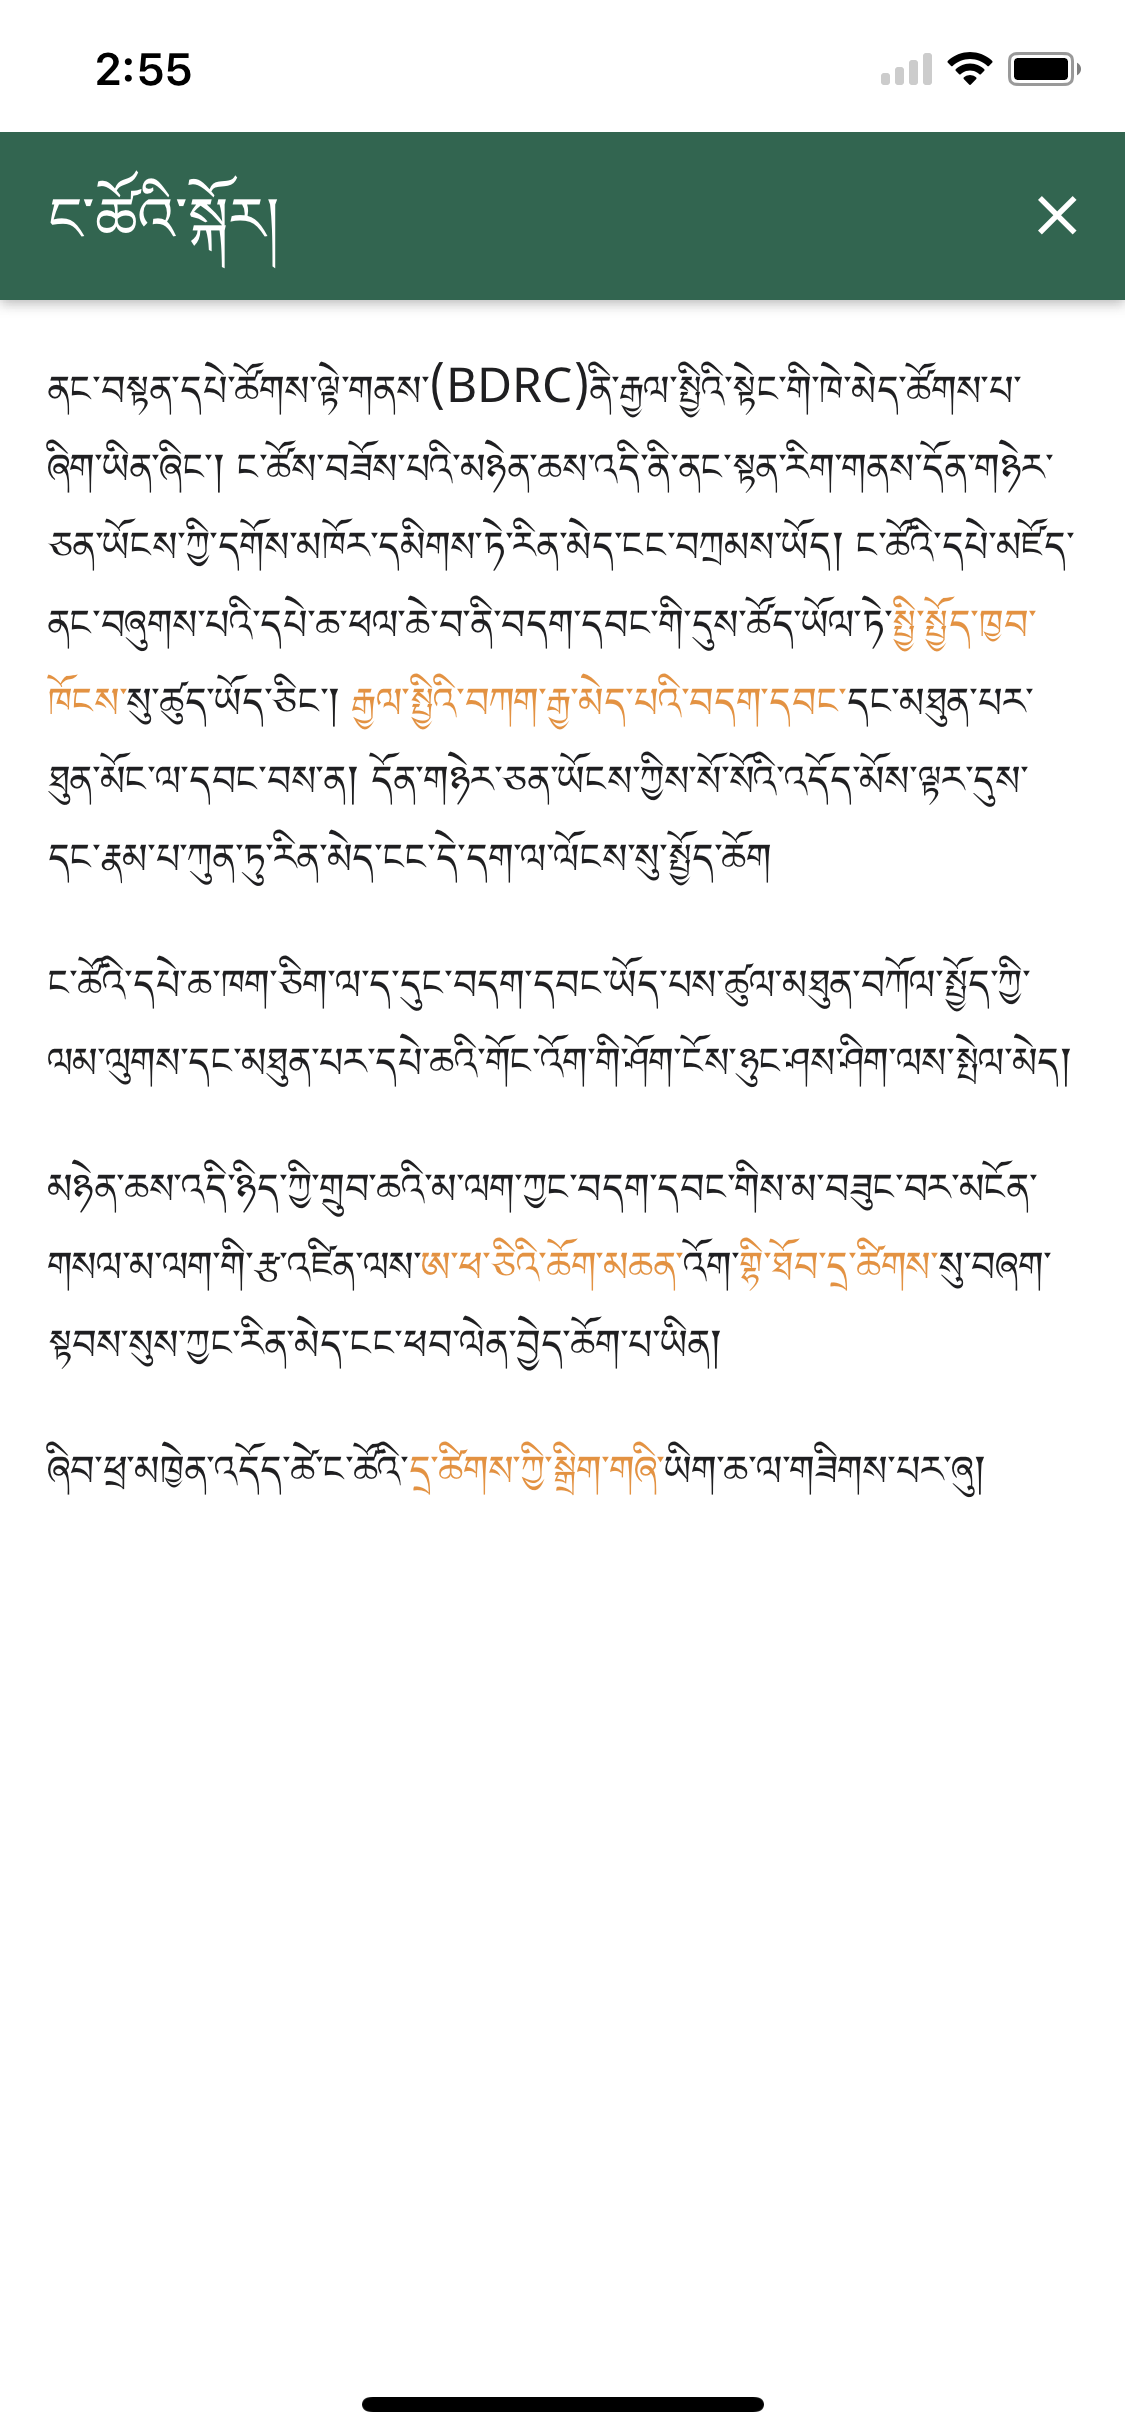 2:55
ང་ཚོའི་སྐོར།
ནང་བསྟན་དཔེ་ཚོགས་ལྟེ་གནས་(BDRC)ནི་རྒྱལ་སྤྱིའི་སྟེང་གི་ཁེ་མེད་ཚོགས་པ་
ཞིག་ཡིན་ཞིང་། ང་ཚོས་བཟོས་པའི་མཉེན་ཆས་འདི་ནི་ནང་སྟན་རིག་གནས་དོན་གཉེར་
ཅན་ཡོངས་ཀྱི་དགོས་མཁོར་དམིགས་ཏེ་རིན་མེད་ངང་བཀྲམས་ཡོད། ང་ཚོའི་དཔེ་མཛོད་
ནང་བཞུགས་པའི་དཔེ་ཆ་ཕལ་ཆེ་བ་ནི་བདག་དབང་གི་དུས་ཚོད་ཡོལ་ཏེ་སྤྱི་སྤྱོད་ཁྱབ་
ཁོངས་སུ་ཚུད་ཡོད་ཅིང་། རྒྱལ་སྤྱིའི་བཀག་རྒྱ་མེད་པའི་བདག་དབང་དང་མཐུན་པར་
ཐུན་མོང་ལ་དབང་བས་ན། དོན་གཉེར་ཅན་ཡོངས་ཀྱིས་སོ་སོའི་འདོད་མོས་ལྟར་དུས་
དང་རྣམ་པ་ཀུན་ཏུ་རིན་མེད་ངང་དེ་དག་ལ་ལོངས་སུ་སྤྱོད་ཆོག
ང་ཚོའི་དཔེ་ཆ་ཁག་ཅིག་ལ་ད་དུང་བདག་དབང་ཡོད་པས་ཚུལ་མཐུན་བཀོལ་སྤྱོད་ཀྱི་
ལམ་ལུགས་དང་མཐུན་པར་དཔེ་ཆའི་གོང་འོག་གི་ཤོག་ངོས་ཉུང་ཤས་ཤིག་ལས་སྤེལ་མེད།
མཉེན་ཆས་འདི་ཉིད་ཀྱི་གྲུབ་ཆའི་མ་ལག་ཀྱང་བདག་དབང་གིས་མ་བཟུང་བར་མངོན་
གསལ་མ་ལག་གི་རྩ་འཛིན་ལས་ཨ་ཕ་ཅིའི་ཆོག་མཆན་འོག་གྷི་ཐོབ་དྲ་ཚིགས་སུ་བཞག་
སྟབས་སུས་ཀྱང་རིན་མེད་ངང་ཕབ་ལེན་བྱེད་ཆོག་པ་ཡིན།
ཞིབ་ཕྲ་མཁྱེན་འདོད་ཚེ་ང་ཚོའི་དྲ་ཚིགས་ཀྱི་སྒྲིག་གཞི་ཡིག་ཆ་ལ་གཟིགས་པར་ཞུ།